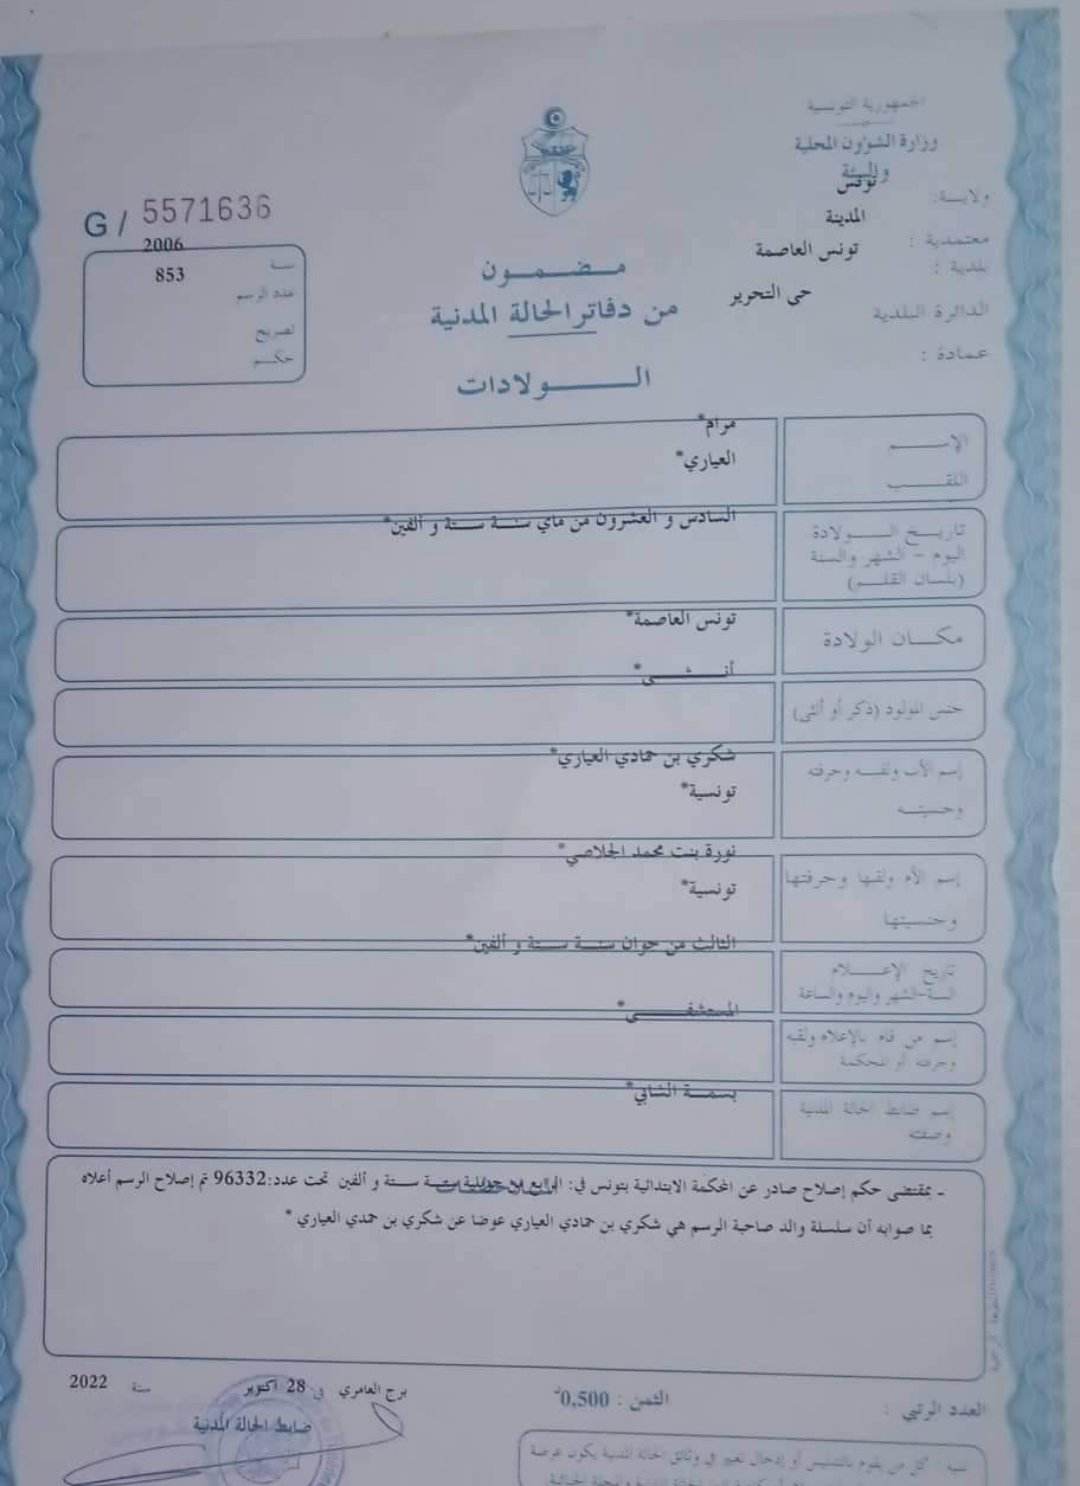 الجمهورية التونسية
وزارة الشؤون المحلية
والبيئة
ولايـــة: تونس
معتمدية : المدينة
بلدية : تونس العاصمة
الدائرة البلدية حي التحرير
عمادة :
G / 5571636
سنة 2006
عدد الرسم 853
تصريح
حكـــم
مــضــمــون
من دفاتر الحالة المدنية
الـــــولادات
الإســـــم مرام*
اللقـــــب العياري*
تاريــخ الـــــولادة السادس و العشرون من ماي سنــة ستــة و ألفين*
اليوم - الشهر والسنة
(بلسان القلــم)
مكــان الولادة تونس العاصمة*
جنس المولود (ذكر أو أنثى) أنـــثـــى*
إسم الأب ولقبــه وحرفته شكري بن حمادي العياري*
وجنسيتــه تونسية*
إسم الأم ولقبها وحرفتها نورة بنت محمد الجلاصي*
وجنسيتها تونسية*
تاريخ الإعـــلام الثالث من جوان سنــة ستــة و ألفين*
السنة-الشهر واليوم والساعة
إسم من قام بالإعلام ولقبه المستشفـــى*
وحرفته أو المحكمة
إسم ضابط الحالة المدنية بسمــة الشابي*
وصفته
- بمقتضى حكم إصلاح صادر عن المحكمة الابتدائية بتونس في: ستــة و ألفين تحت عدد:96332 تم إصلاح الرسم أعلاه
بما صوابه أن سلسلة والد صاحبة الرسم هي شكري بن حمادي العياري عوضا عن شكري بن حمدي العياري *
برج العامري في 28 اكتوبر سنة 2022
ضابط الحالة المدنية
العدد الرتبي :
الثمن : 0,500
تنبيه كل من يقوم بالتدليس أو إدخال تغيير في وثائق الحالة المدنية يكون عرضة